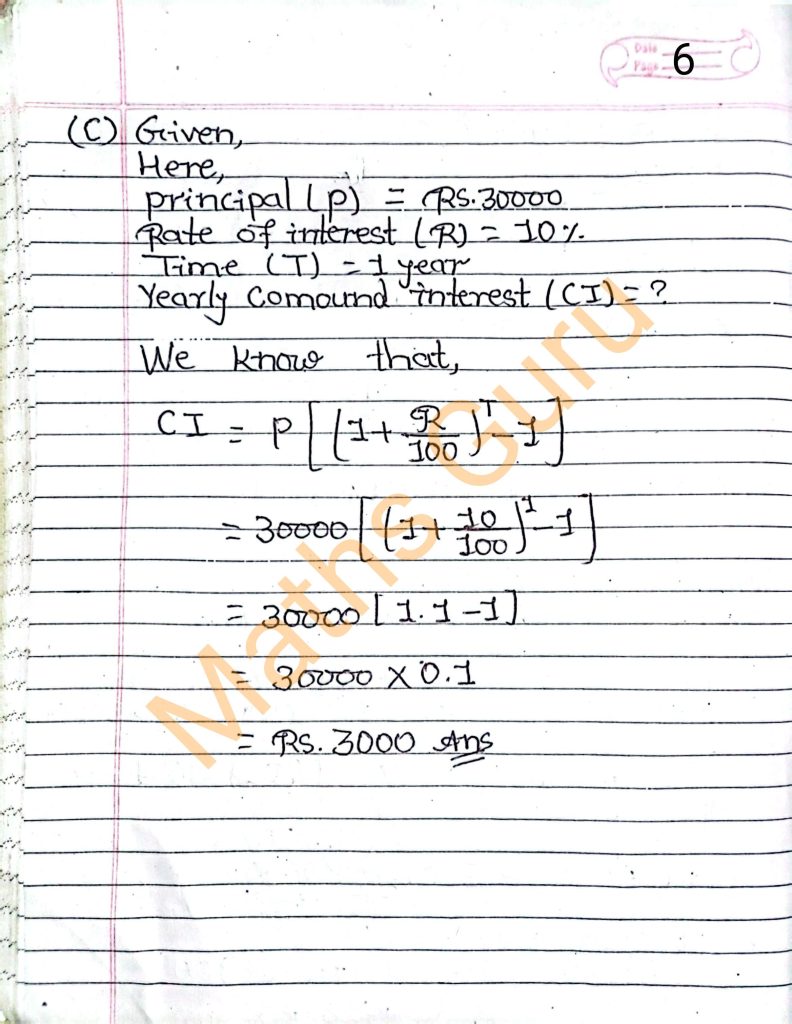 Date
Page 6
(C) Given,
Here,
principal (P) = RS. 30000
Rate of interest (R) = 10%.
Time (T) = 1 year
Yearly Comound interest (CI) = ?
We know that,
CI = P [(1 + R/100)^T - 1]
= 30000 [(1 + 10/100)^1 - 1]
= 30000 [1.1 - 1]
= 30000 × 0.1
= RS. 3000 Ans
Maths Guru